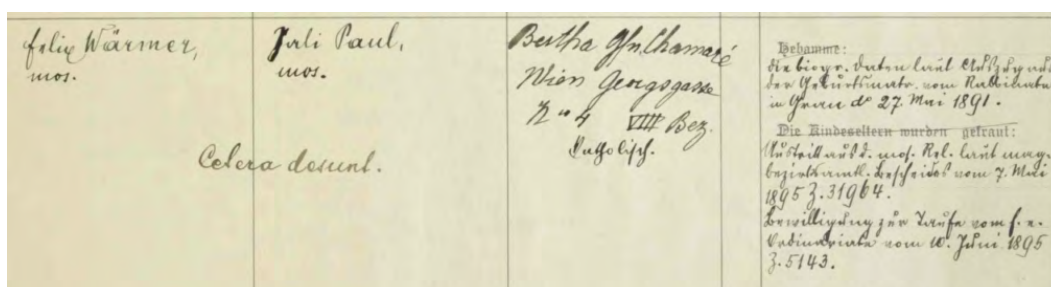 Felix Wärmer,
mos.
Juli Paul,
mos.
Cetera desunt.
Bertha Gfn. Chamaré
Wien Georgsgasse
No 4 VIII Bez.
Katholisch.
Hebamme:
die biogr. Daten laut Auszug aus
der Geburtsmatr. vom Rabbinate
in Gran do 27. Mai 1891.
Die Kindeseltern wurden getraut:
Austritt aus d. mos. Rel. laut mag.
bezirksamtl. Bescheides vom 7. Mai
1895 Z. 31964.
Bewilligung zur Taufe vom f. e.
Ordinariate vom 10. Juni 1895
Z. 5143.